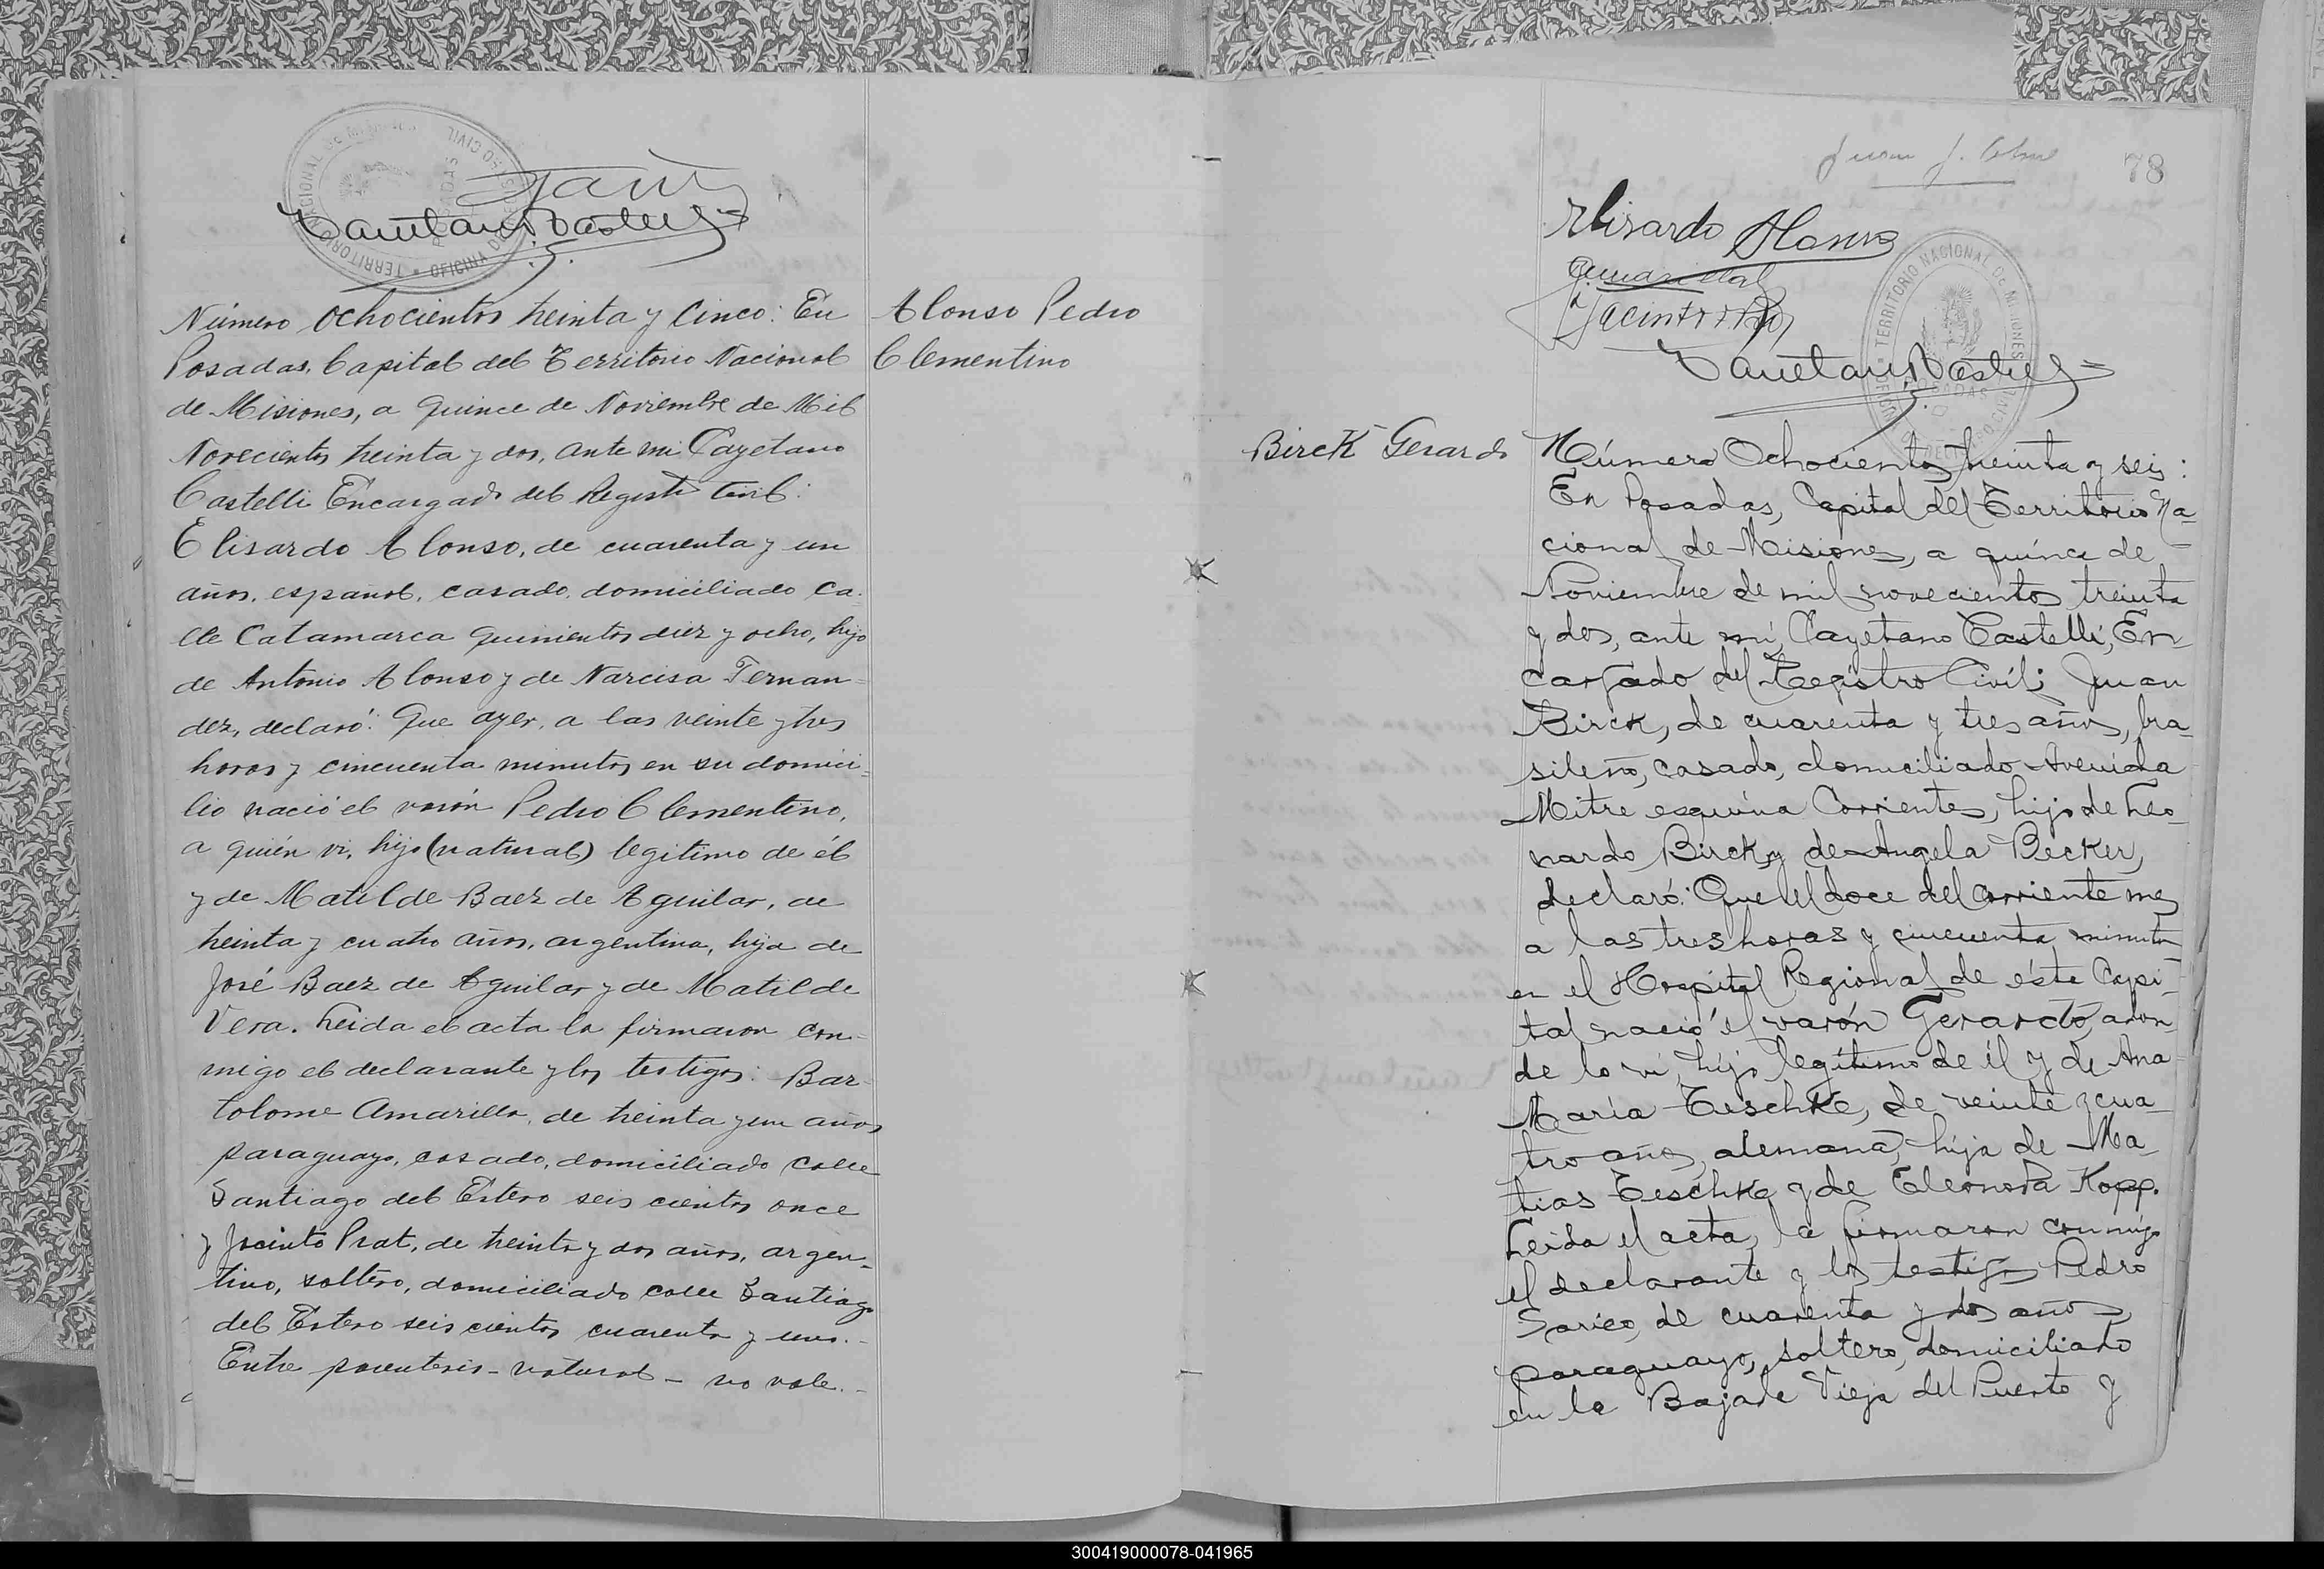 Cayetano Castelli
Número Ochocientos treinta y Cinco: En
Posadas, Capital del Territorio Nacional
de Misiones, a quince de Noviembre de Mil
Novecientos treinta y dos, ante mi Cayetano
Castelli Encargado del Registro Civil:
Elisardo Alonso, de cuarenta y un
años, español, casado, domiciliado ca-
lle Catamarca quinientos diez y ocho, hijo
de Antonio Alonso y de Narcisa Fernan-
dez, declaró: Que ayer, a las veinte y tres
horas y cincuenta minutos en su domici-
lio nació el varón Pedro Clementino,
a quién vi, hijo (natural) legitimo de él
y de Matilde Baez de Aguilar, de
treinta y cuatro años, argentina, hija de
José Baez de Aguilar y de Matilde
Vera. Leida el acta la firmaron con-
migo el declarante y los testigos: Bar-
tolome Amarilla, de treinta y un años
paraguayo, casado, domiciliado calle
Santiago del Estero seis cientos once
y Jacinto Prat, de treinta y dos años, argen-
tino, soltero, domiciliado calle Santiago
del Estero seis cientos cuarenta y uno.-
Entre parentesis - natural - no vale.-
Alonso Pedro
Clementino
78
Elisardo Alonso
Jacinto Prat
Cayetano Castelli
TERRITORIO NACIONAL DE MISIONES
Birck Gerardo
Número Ochocientos treinta y seis:
En Posadas, Capital del Territorio Na-
cional de Misiones, a quince de
Noviembre de mil novecientos treinta
y dos, ante mí, Cayetano Castelli, En-
cargado del Registro Civil; Juan
Birck, de cuarenta y tres años, bra-
sileño, casado, domiciliado Avenida
Mitre esquina Corrientes, hijo de Leo-
nardo Birck y de Angela Becker,
declaró: Que el doce del corriente mes
a las tres horas y cincuenta minutos
en el Hospital Regional de ésta Capi-
tal nació el varón Gerardo, adon-
de lo vi, hijo legítimo de él y de Ana
María Teschke, de veinte y cua-
tro años, alemana, hija de Ma-
tias Teschke y de Eleonora Kopp.
Leida el acta, la firmaron conmigo
el declarante y los testigos Pedro
de cuarenta y dos años,
paraguayo, soltero, domiciliado
en la Bajada Vieja del Puerto y
300419000078-041965